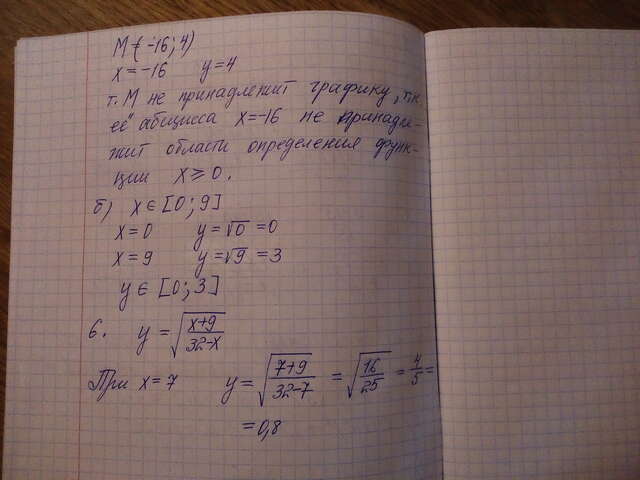 M = (-16; 4)
x = -16 y = 4
т. M не принадлежит графику, т.к.
её абицисса x=-16 не принадле-
жит области определения функ-
ции x ⩾ 0.
б) x ∈ [0; 9]
x = 0 y = √0 = 0
x = 9 y = √9 = 3
y ∈ [0; 3]
6. y = √((x+9)/(32-x))
При x = 7 y = √((7+9)/(32-7)) = √(16/25) = 4/5 =
= 0,8